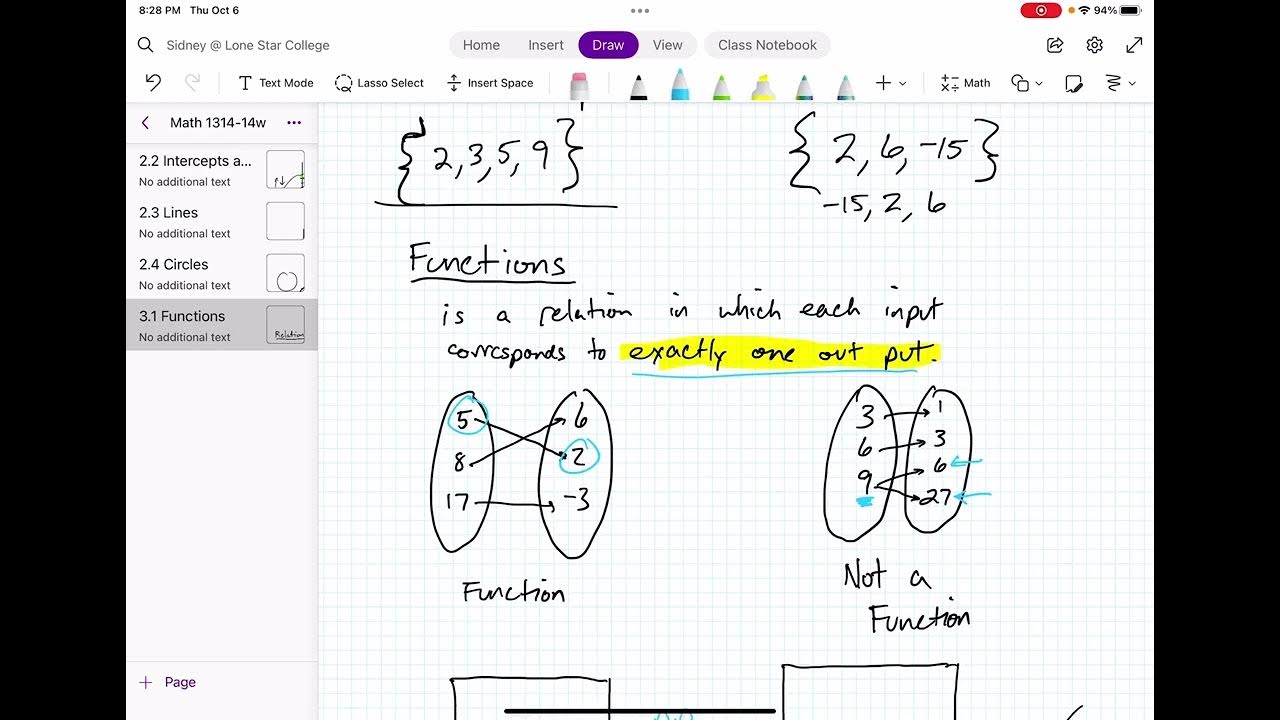 8:28 PM Thu Oct 6
94%
Sidney @ Lone Star College
Home Insert Draw View Class Notebook
Text Mode Lasso Select Insert Space Math
Math 1314-14w
2.2 Intercepts a...
No additional text
2.3 Lines
No additional text
2.4 Circles
No additional text
3.1 Functions
No additional text
Relation
+ Page
{2, 3, 5, 9}
{2, 6, -15}
-15, 2, 6
Functions
is a relation in which each input
corresponds to exactly one out put.
5 6
8 2
17 -3
Function
3 1
6 3
9 6
27
Not a
Function